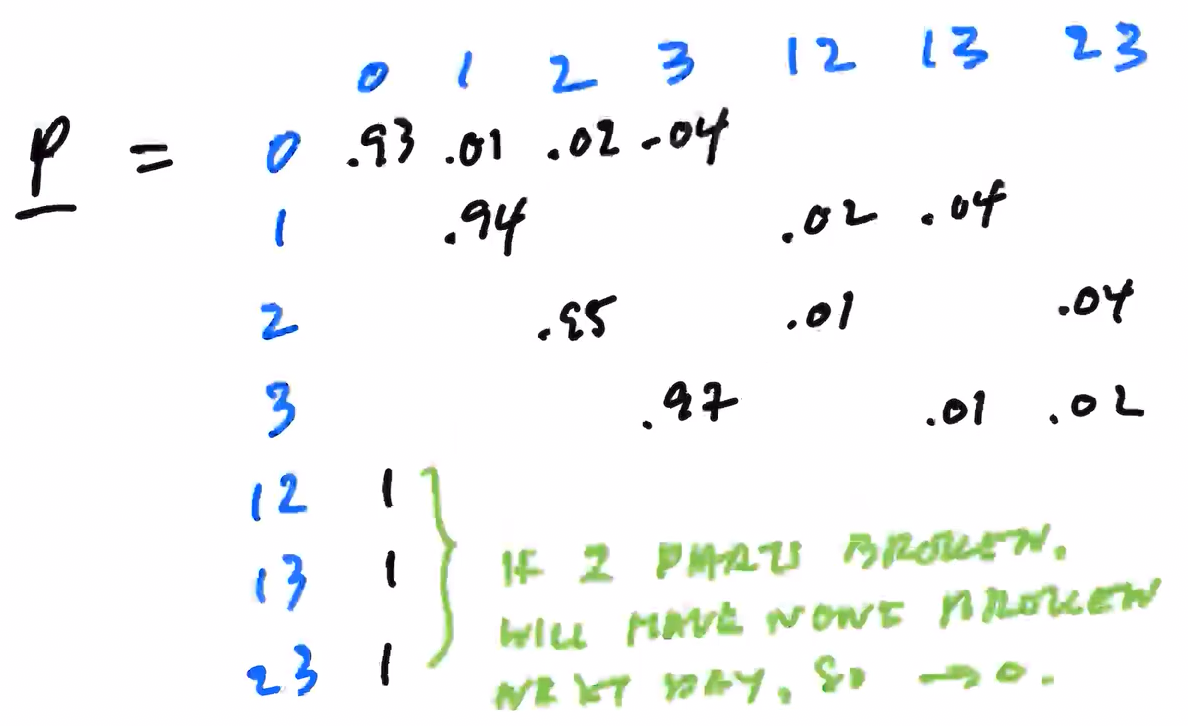 0 1 2 3 12 13 23
P = 0 .93 .01 .02 .04
1 .94 .02 .04
2 .95 .01 .04
3 .97 .01 .02
12 1
13 1 IF 2 PARTS BROKEN,
WILL HAVE NONE BROKEN
23 1 NEXT DAY, SO → 0.